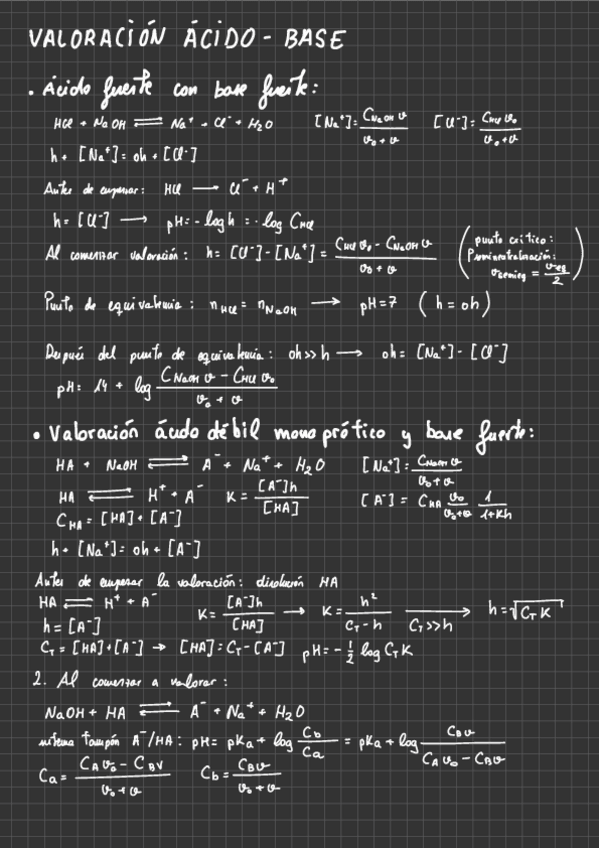 VALORACIÓN ÁCIDO - BASE
• Ácido fuerte con base fuerte:
HCl + NaOH ⇌ Na⁺ + Cl⁻ + H₂O [Na⁺] = C_NaOH v / (v₀ + v) [Cl⁻] = C_HCl v₀ / (v₀ + v)
h + [Na⁺] = oh + [Cl⁻]
Antes de empezar: HCl → Cl⁻ + H⁺
h = [Cl⁻] → pH = - log h = - log C_HCl
Al comenzar valoración: h = [Cl⁻] - [Na⁺] = (C_HCl v₀ - C_NaOH v) / (v₀ + v) (punto crítico: Psemineutralización: v_semieq = v_eq / 2)
Punto de equivalencia: n_HCl = n_NaOH → pH = 7 (h = oh)
Después del punto de equivalencia: oh >> h → oh = [Na⁺] - [Cl⁻]
pH = 14 + log (C_NaOH v - C_HCl v₀) / (v₀ + v)
• Valoración ácido débil monoprótico y base fuerte:
HA + NaOH ⇌ A⁻ + Na⁺ + H₂O [Na⁺] = C_NaOH v / (v₀ + v)
HA ⇌ H⁺ + A⁻ K = [A⁻]h / [HA] [A⁻] = C_HA v₀ / (v₀ + v) 1 / (1 + Kh)
C_HA = [HA] + [A⁻]
h + [Na⁺] = oh + [A⁻]
Antes de empezar la valoración: disolución HA
HA ⇌ H⁺ + A⁻ K = [A⁻]h / [HA] → K = h² / (C_T - h) → C_T >> h h = √(C_T K)
h = [A⁻]
C_T = [HA] + [A⁻] → [HA] = C_T - [A⁻] pH = - 1/2 log C_T K
2. Al comenzar a valorar:
NaOH + HA ⇌ A⁻ + Na⁺ + H₂O
sistema tampón A⁻/HA: pH = pKa + log Cb / Ca = pKa + log C_B v / (C_A v₀ - C_B v)
Ca = (C_A v₀ - C_B v) / (v₀ + v) Cb = C_B v / (v₀ + v)